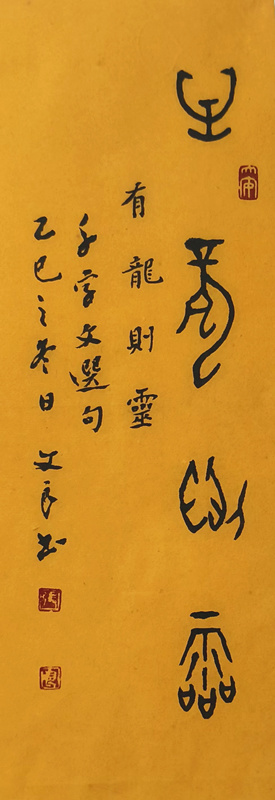 有龍則靈
有龍則靈
千字文選句
乙巳之冬日 文良書